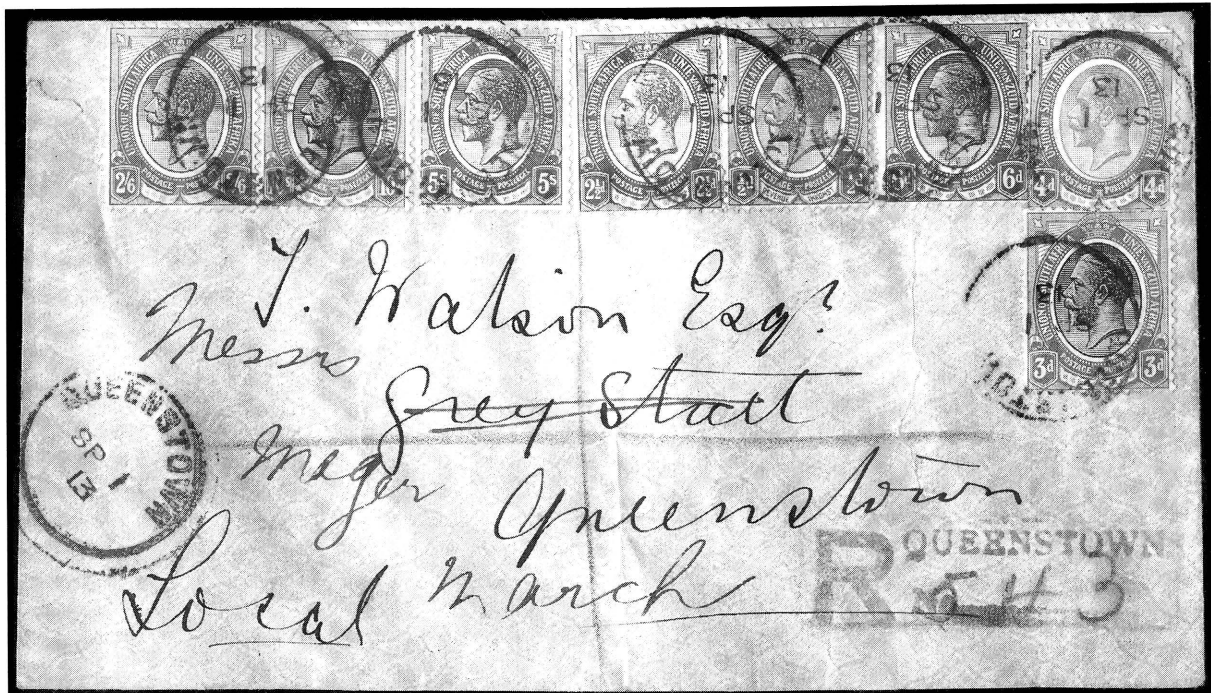 UNION OF SOUTH AFRICA UNIE VAN ZUID AFRIKA
POSTAGE POSTZEGEL
2/6
5s 5s
2½d
6d
4d 4d
3d 3d
SP 1
13
T. Watson Esqr
Messrs
Grey Street
Queenstown
Local March
QUEENSTOWN
SP 1
13
R QUEENSTOWN
No 543